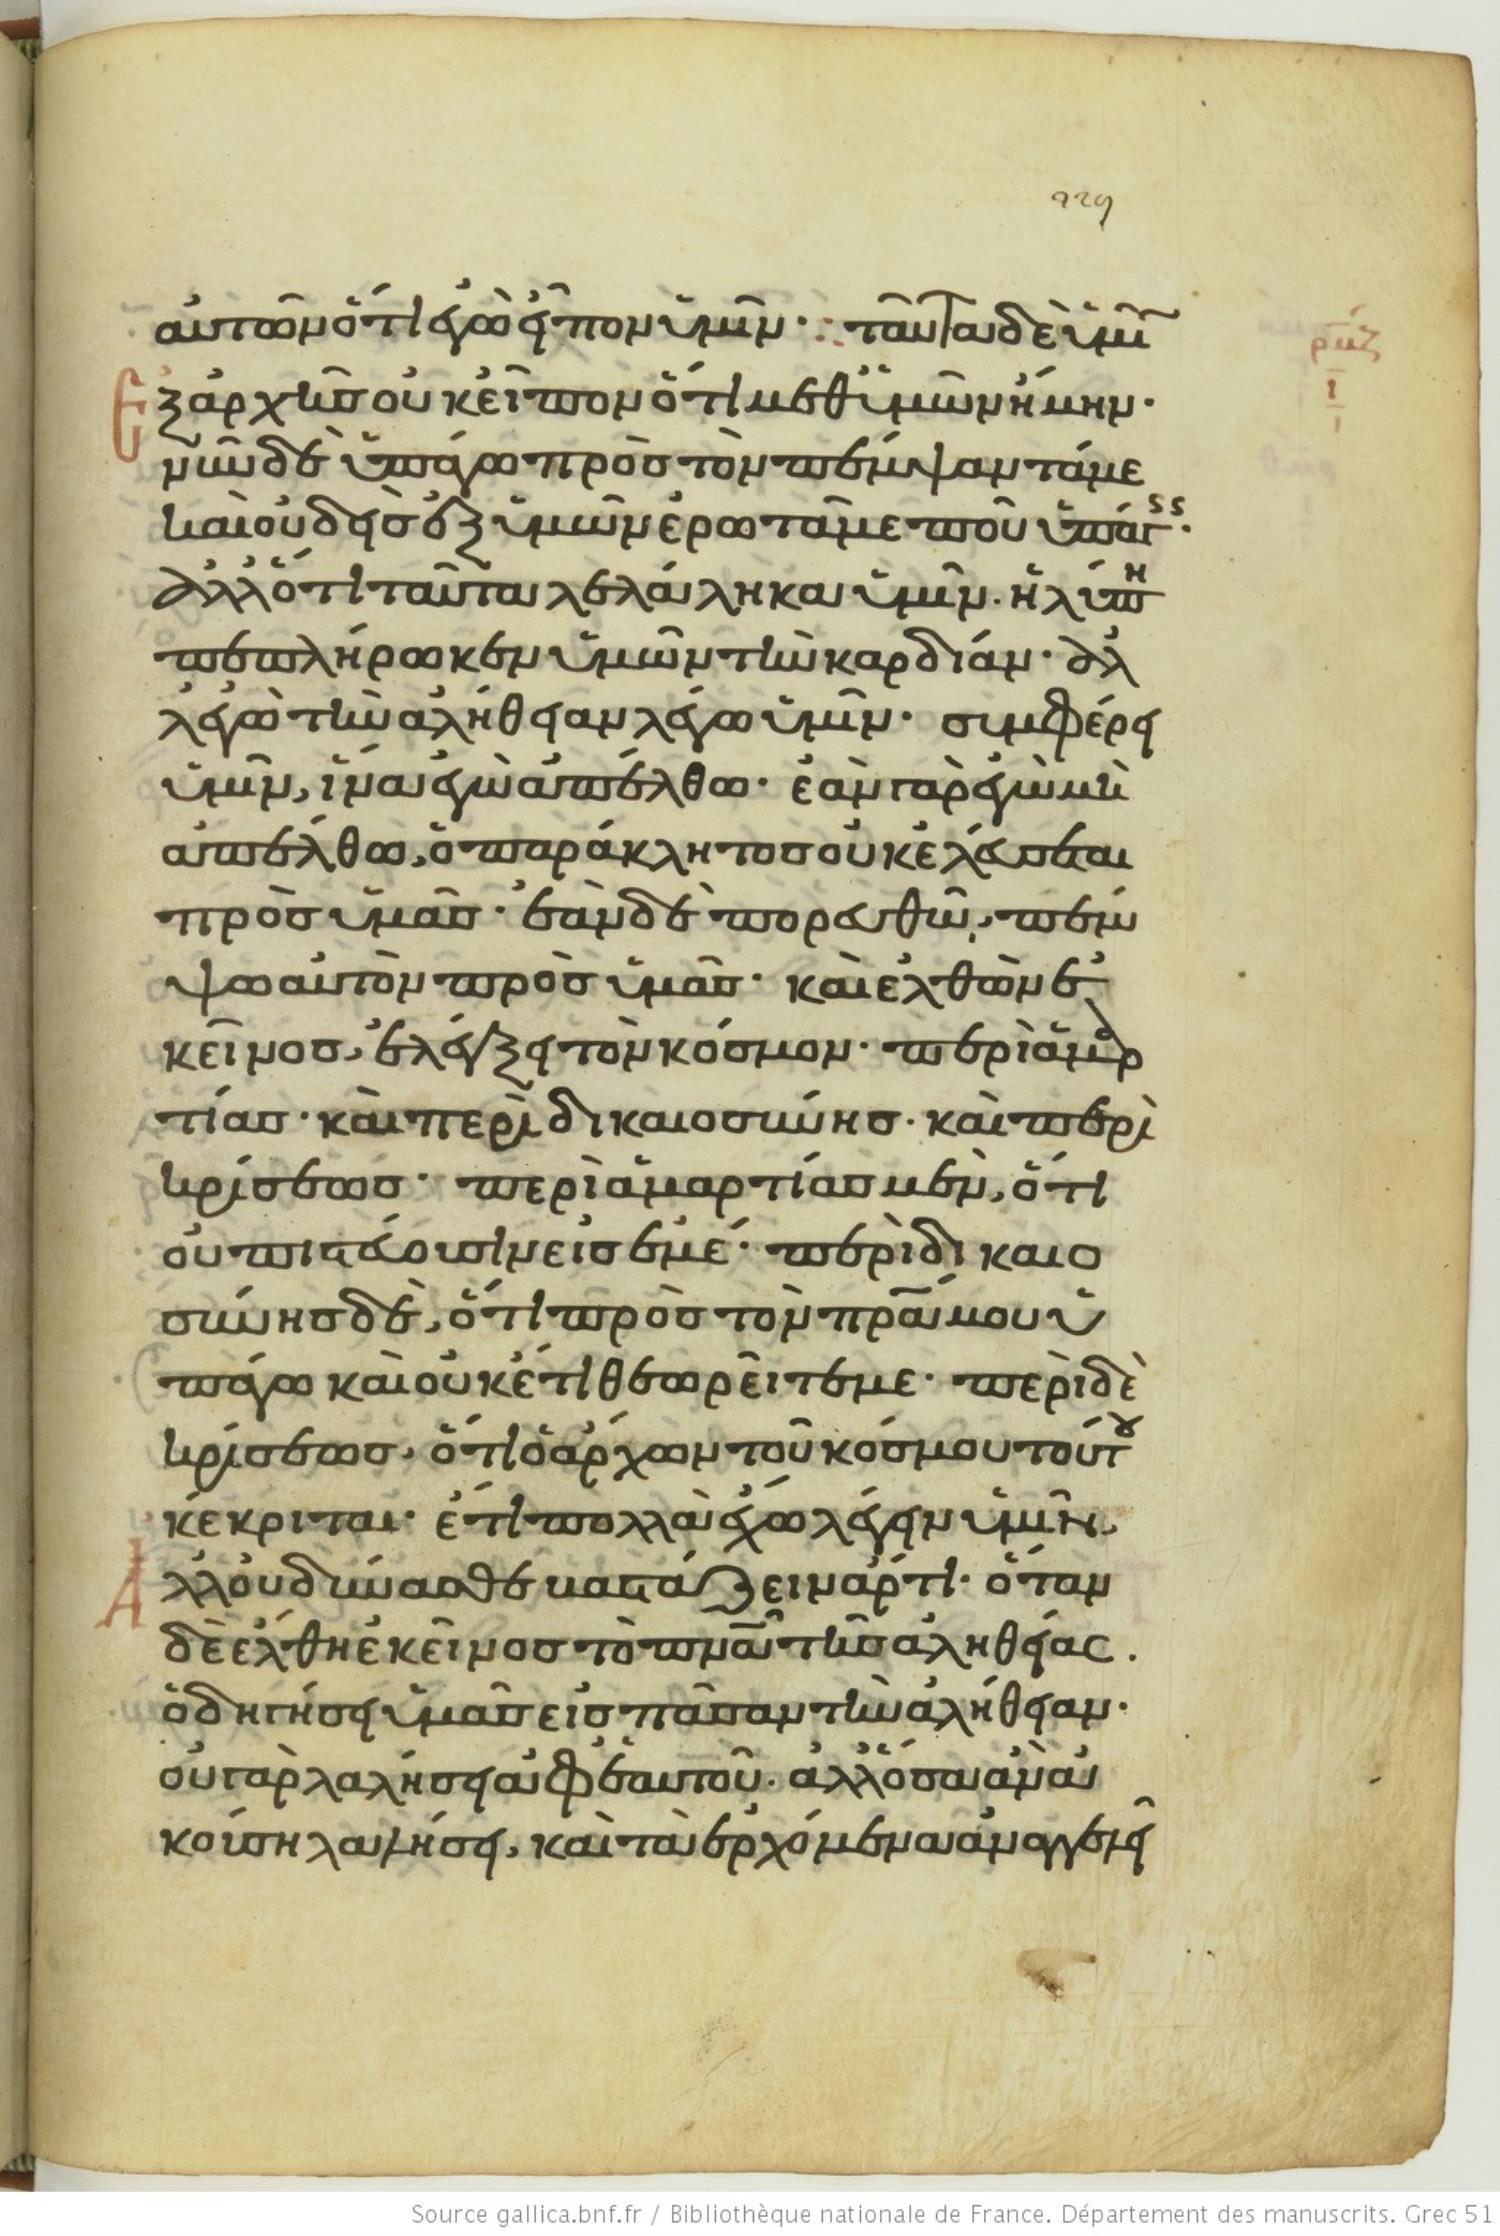 229
αὐτῶν ὅτι ἐγὼ εἶπον ὑμῖν· ταῦτα δὲ ὑμῖ
ρμζ
ι
Ἐξ ἀρχῆς οὐκ εἶπον ὅτι μεθ ὑμῶν ἤμην·
νῦν δὲ ὑπάγω πρὸς τὸν πέμψαντά με
καὶ οὐδεὶς ἐξ ὑμῶν ἐρωτᾶ με ποῦ ὑπάγεις·
ἀλλ ὅτι ταῦτα λελάληκα ὑμῖν· ἡ λύπη
πεπλήρωκεν ὑμῶν τὴν καρδίαν· ἀλ
λ ἐγὼ τὴν ἀλήθειαν λέγω ὑμῖν· συμφέρει
ὑμῖν, ἵνα ἐγὼ ἀπέλθω· ἐὰν γὰρ ἐγὼ μὴ
ἀπέλθω, ὁ παράκλητος οὐκ ἐλεύσεται
πρὸς ὑμᾶς· ἐὰν δὲ πορευθῶ, πέμ
ψω αὐτὸν πρὸς ὑμᾶς· καὶ ἐλθὼν ἐ
κεῖνος, ἐλέγξει τὸν κόσμον· περὶ ἁμαρ
τίας· καὶ περὶ δικαιοσύνης· καὶ περὶ
κρίσεως· περὶ ἁμαρτίας μὲν, ὅτι
οὐ πιστεύουσιν εἰς ἐμέ· περὶ δικαιο
σύνης δὲ, ὅτι πρὸς τὸν πρ̅α μου ὑ
πάγω καὶ οὐκ ἔτι θεωρεῖτε με· περὶ δὲ
κρίσεως, ὅτι ὁ ἄρχων τοῦ κόσμου τούτου
κέκριται· ἔτι πολλὰ ἔχω λέγειν ὑμῖν,
Ἀλλ οὐ δύνασθε βαστάζειν ἄρτι· ὅταν
δὲ ἔλθη ἐκεῖνος τὸ πν̅α τῆς ἀληθείας.
ὁδηγήσει ὑμᾶς εἰς πᾶσαν τὴν ἀλήθειαν·
οὐ γὰρ λαλήσει ἀφ ἑαυτοῦ· ἀλλ ὅσα ἂν ἀ
κούση λαλήσει, καὶ τὰ ἐρχόμενα ἀναγγελεῖ
Source gallica.bnf.fr / Bibliothèque nationale de France. Département des manuscrits. Grec 51